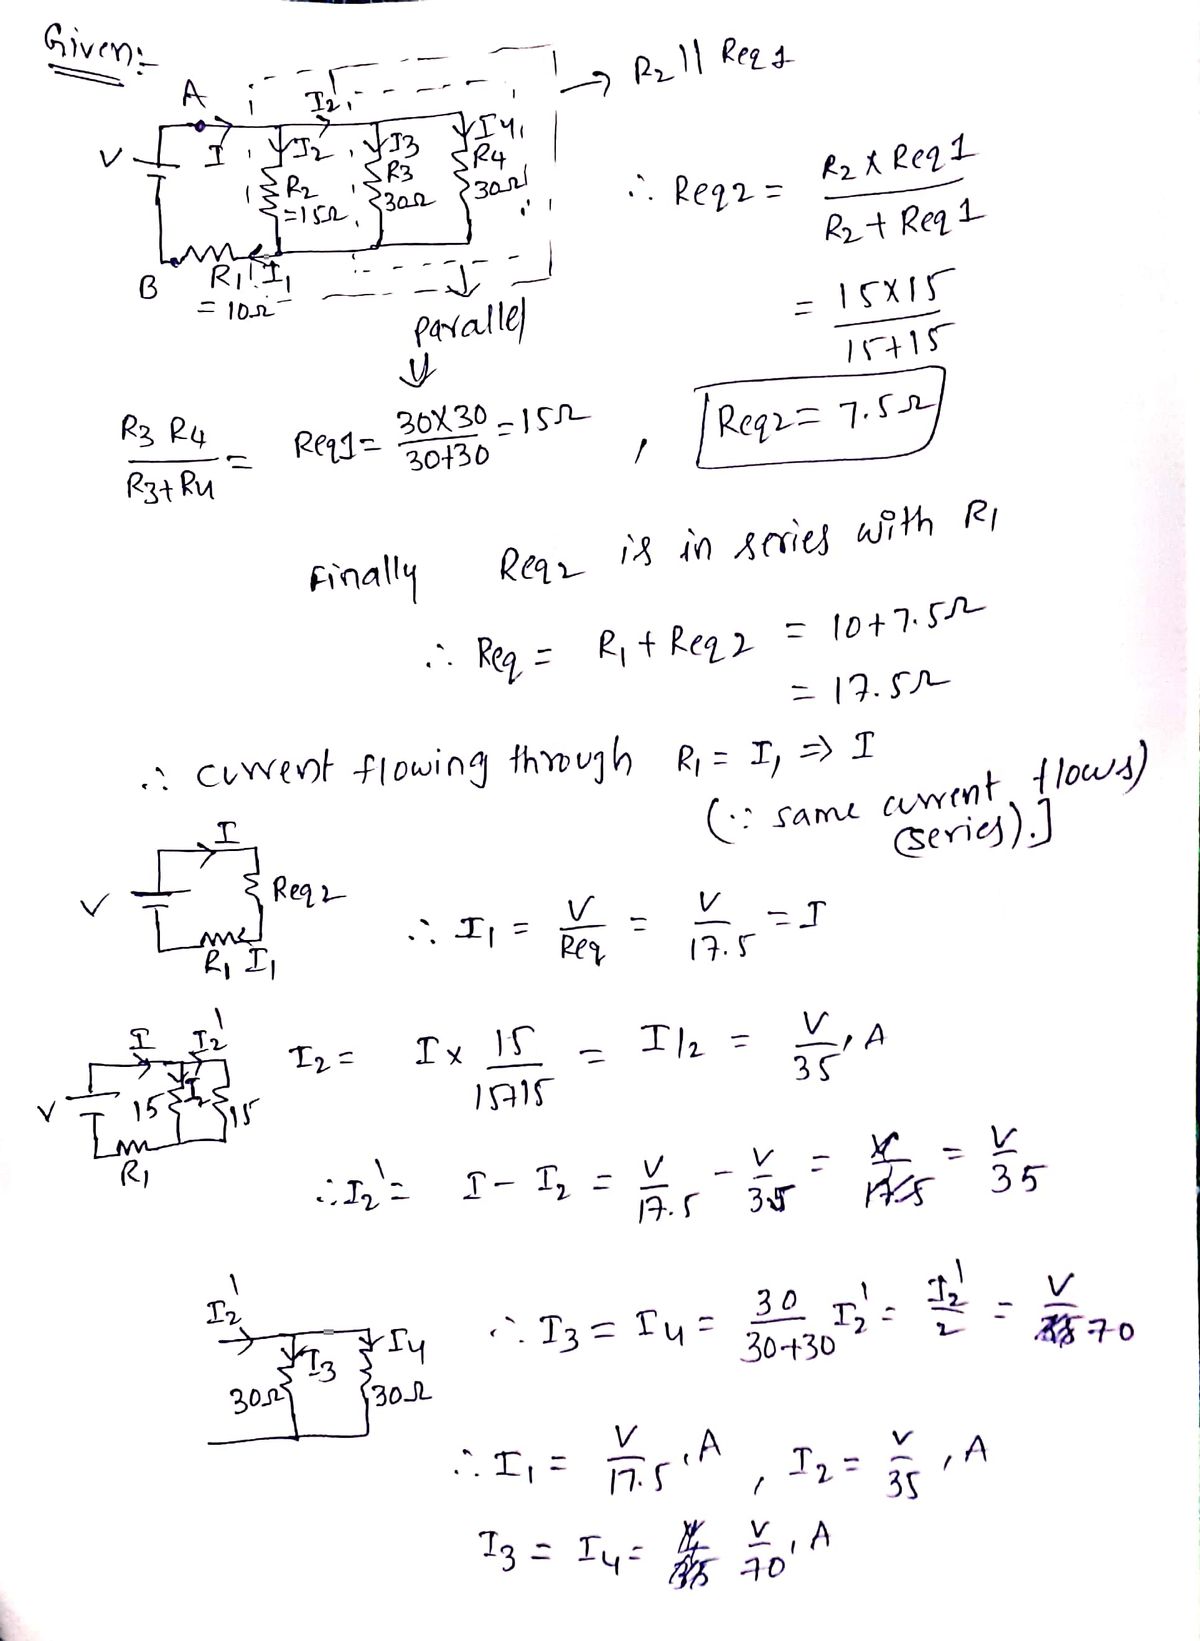 Given:-
A I2' → R2 || Req1
V I I2 I3 I4
R2 =15Ω R3 30Ω R4 30Ω
∴ Req2 = R2 x Req1 / R2 + Req1
B R1 I1
= 10Ω
parallel
= 15x15 / 15+15
R3 R4 / R3+R4 = Req1 = 30x30 / 30+30 = 15Ω , Req2 = 7.5Ω
Finally Req2 is in series with R1
∴ Req = R1 + Req2 = 10+7.5Ω
= 17.5Ω
∴ current flowing through R1 = I1 => I
(∵ same current flows)
(series).]
I
V Req2
R1 I1
∴ I1 = V/Req = V/17.5 = I
I I2'
V 15 I2 15
R1
I2 = I x 15 / 15+15 = I/2 = V/35, A
∴ I2' = I - I2 = V/17.5 - V/35 = V/17.5 = V/35
I2'
I3 I4
30Ω 30Ω
∴ I3 = I4 = 30 / 30+30 I2' = I2'/2 = V/70
∴ I1 = V/17.5, A , I2 = V/35, A
I3 = I4 = V/70, A